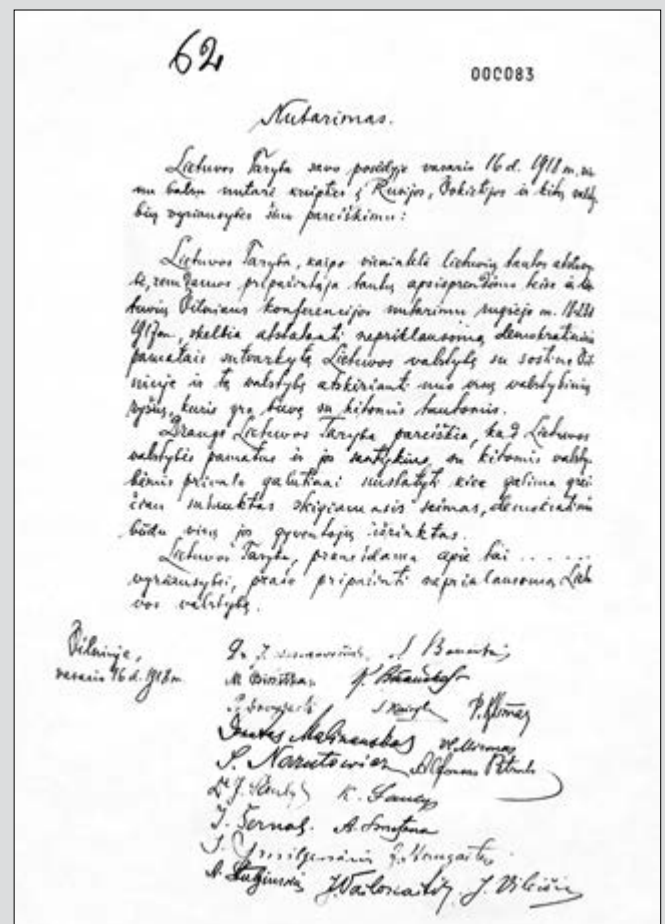 62
000083
Nutarimas.
Lietuvos Taryba savo posėdyje vasario 16 d. 1918 m. vie
nu balsu nutarė kreipties į Rusijos, Vokietijos ir kitų valsty
bių vyriausybes šiuo pareiškimu:
Lietuvos Taryba, kaipo vienintelė lietuvių tautos atstovy
bė, remdamos pripažintąja tautų apsisprendimo teise ir lie
tuvių Vilniaus konferencijos nutarimu rugsėjo m. 18-23 d.
1917 m., skelbia atstatanti nepriklausomą demokratiniais
pamatais sutvarkytą Lietuvos valstybę su sostine Vil
niuje ir tą valstybę atskirianti nuo visų valstybinių
ryšių, kurie yra buvę su kitomis tautomis.
Drauge Lietuvos Taryba pareiškia, kad Lietuvos
valstybės pamatus ir jos santykius su kitomis valsty-
bėmis privalo galutinai nustatyti kiek galima grei
čiau sušauktas steigiamasis seimas, demokratiniu
būdu visų jos gyventojų išrinktas.
Lietuvos Taryba, pranešdama apie tai ......
vyriausybei, prašo pripažinti nepriklausomą Lietu
vos valstybę.
Vilniuje,
vasario 16 d. 1918 m.
Dr. J.
M. Biržiška
P. Klimas
Donatas Malinauskas
S. Narutowicz Alfonsas Petrulis
Dr J. Šaulys
J. Šernas. A. Smetona
J. Vailokaitis J. Vileišis